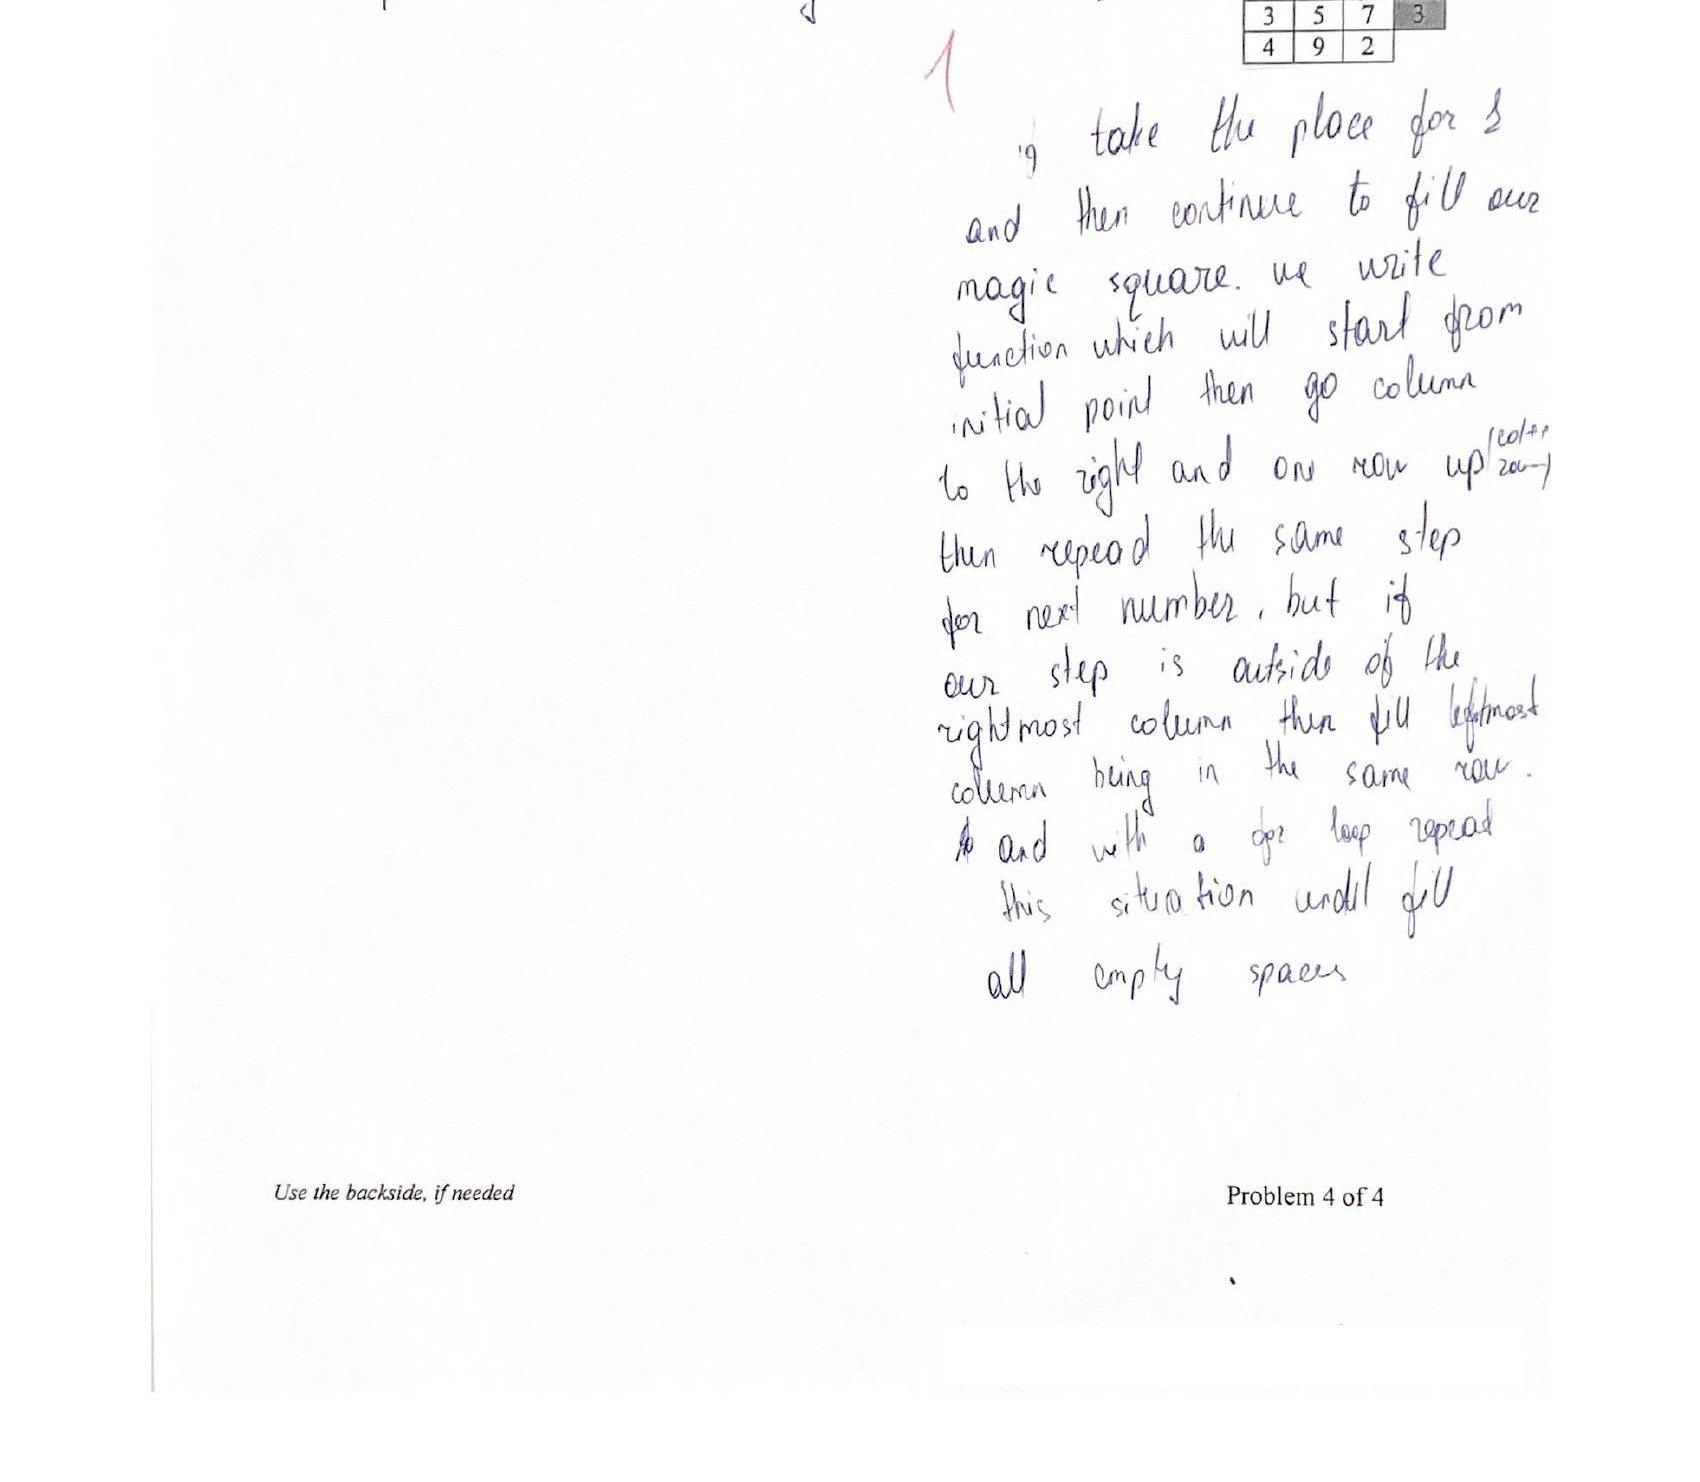 3 5 7 3
4 9 2
1
take the place for 1
and then continue to fill our
magic square. we write
function which will start from
initial point then go column
to the right and one row up (col++
row--)
then repead the same step
for next number, but if
our step is outside of the
rightmost column then fill leftmost
column being in the same row.
and with a for loop repead
this situation until fill
all empty spaces
Use the backside, if needed
Problem 4 of 4